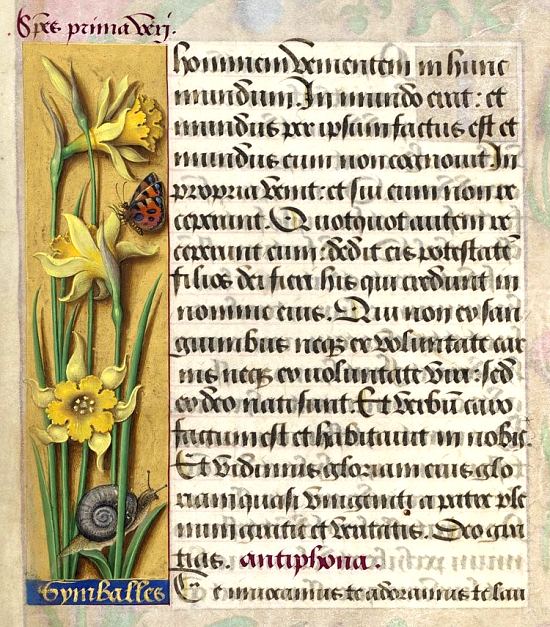 Spes prima veri.
hominem venientem in hunc
mundum. In mundo erat: et
mundus per ipsum factus est et
mundus eum non cognouit In
propria venit: et sui eum non re
ceperunt. Quotquot autem re
ceperunt eum: dedit eis potestatē
filios dei fieri his qui credunt in
nomine eius. Qui non ex san
guinibus neqȝ ex voluntate car
nis neqȝ ex voluntate viri: sed
ex deo nati sunt. Et verbū caro
factum est et habitauit in nobis.
Et vidimus gloriam eius glo
riam quasi vnigeniti a patre ple
num gratie et veritatis. Deo gra
tias. antiphona.
Te inuocamus te adoramus te lau
Symballes